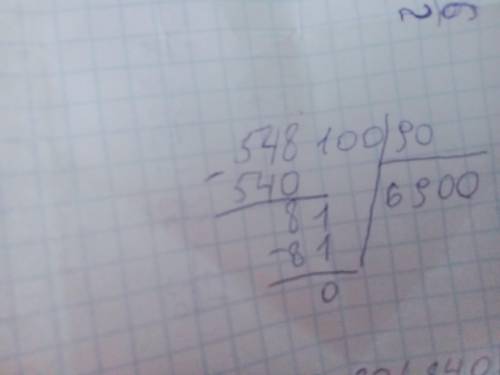 548100|90
-540 6900
81
-81
0